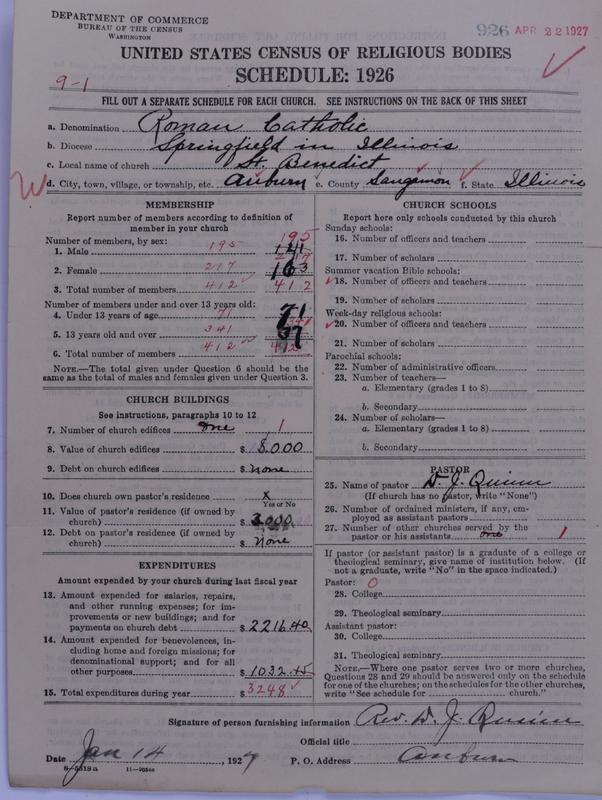 DEPARTMENT OF COMMERCE
BUREAU OF THE CENSUS
WASHINGTON
926 APR 22 1927
UNITED STATES CENSUS OF RELIGIOUS BODIES
SCHEDULE: 1926
9-1
FILL OUT A SEPARATE SCHEDULE FOR EACH CHURCH. SEE INSTRUCTIONS ON THE BACK OF THIS SHEET
a. Denomination Roman Catholic
b. Diocese Springfield in Illinois
c. Local name of church St. Benedict
d. City, town, village, or township, etc. Auburn e. County Sangamon f. State Illinois
MEMBERSHIP
Report number of members according to definition of
member in your church
Number of members, by sex:
195
1. Male 195 141
217
2. Female 217 163
3. Total number of members 412 412
Number of members under and over 13 years old:
4. Under 13 years of age 71 71
341
5. 13 years old and over 341
6. Total number of members 412 412
NOTE.—The total given under Question 6 should be the
same as the total of males and females given under Question 3.
CHURCH BUILDINGS
See instructions, paragraphs 10 to 12
7. Number of church edifices one 1
8. Value of church edifices $ 8000
9. Debt on church edifices $ none
10. Does church own pastor's residence x
Yes or No
11. Value of pastor's residence (if owned by
church) $ 3000
12. Debt on pastor's residence (if owned by
church) $ None
EXPENDITURES
Amount expended by your church during last fiscal year
13. Amount expended for salaries, repairs,
and other running expenses; for im-
provements or new buildings; and for
payments on church debt $ 2216.40
14. Amount expended for benevolences, in-
cluding home and foreign missions; for
denominational support; and for all
other purposes $ 1032.45
15. Total expenditures during year $ 3248
CHURCH SCHOOLS
Report here only schools conducted by this church
Sunday schools:
16. Number of officers and teachers
17. Number of scholars
Summer vacation Bible schools:
18. Number of officers and teachers
19. Number of scholars
Week-day religious schools:
20. Number of officers and teachers
21. Number of scholars
Parochial schools:
22. Number of administrative officers
23. Number of teachers—
a. Elementary (grades 1 to 8)
b. Secondary
24. Number of scholars—
a. Elementary (grades 1 to 8)
b. Secondary
PASTOR
25. Name of pastor D. J. Quinn
(If church has no pastor, write "None")
26. Number of ordained ministers, if any, em-
ployed as assistant pastors
27. Number of other churches served by the
pastor or his assistants one 1
If pastor (or assistant pastor) is a graduate of a college or
theological seminary, give name of institution below. (If
not a graduate, write "No" in the space indicated.)
Pastor: 0
28. College
29. Theological seminary
Assistant pastor:
30. College
31. Theological seminary
NOTE.—Where one pastor serves two or more churches,
Questions 28 and 29 should be answered only on the schedule
for one of the churches; on the schedules for the other churches,
write "See schedule for church."
Signature of person furnishing information Rev. D. J. Quinn
Official title
Date Jan 14, 1927 P. O. Address Auburn
8-5518a 11-9054a